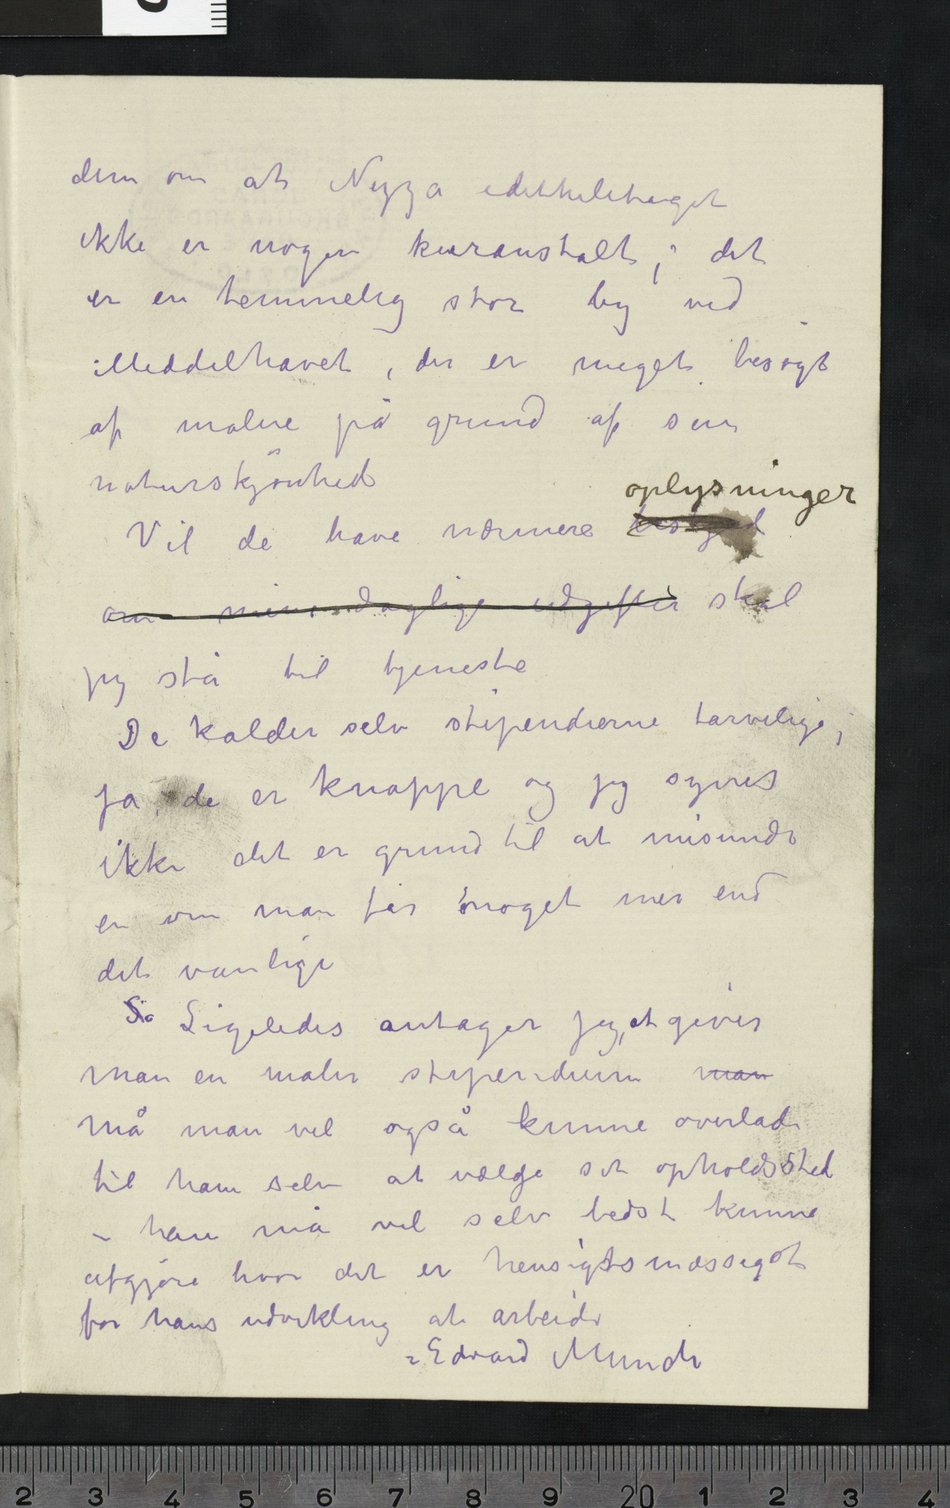 dem om at Nizza idethelehaget
ikke er nogen kuranstalt; det
er en temmelig stor by ved
Middelhavet, der er meget besøgt
af malere på grund af sin
naturskjønhed
oplysninger
Vil de have nærmere besked
om mine daglige udgifter skal
jeg stå til tjeneste
De kalder selv stipendierne tarvelige;
ja, de er knappe og jeg synes
ikke det er grund til at misunde
en om man får noget mer end
det vanlige
Så Ligeledes antager jeg, at giver
man en maler stipendium man
må man vel også kunne overlade
til ham selv at vælge sit opholdssted
– han må vel selv bedst kunne
afgjøre hvor det er hensigtsmæssigst
for hans udvikling at arbeide
Edvard Munch
2 3 4 5 6 7 8 9 20 1 2 3 4